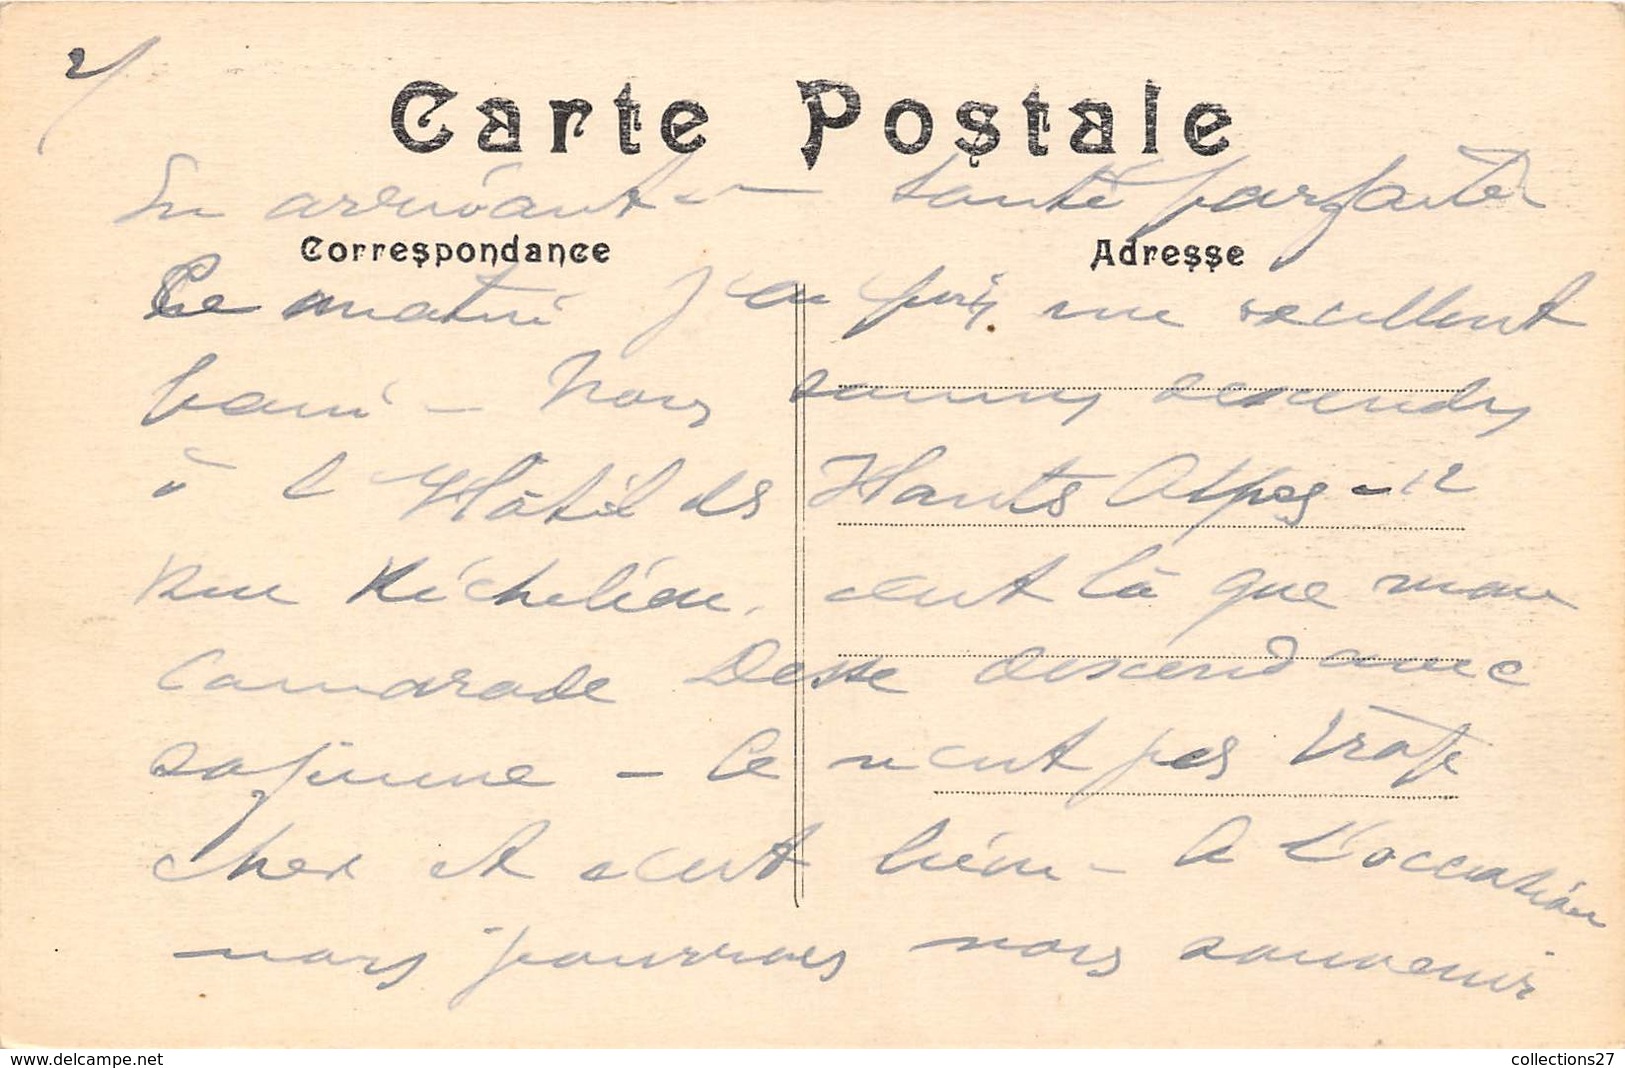 2/
Carte Postale
En arrivant — santé parfaite
Correspondance
Adresse
Ce matin j'en pris un excellent
bain — Nous sommes descendus
à l'Hôtel des Hautes Alpes - 12
Rue Richelieu. c'est là que mon
Camarade Desse descend avec
sa femme — Ce n'est pas trop
cher et c'est bien — A l'occasion
nous pourrons nous souvenir
www.delcampe.net
collections27